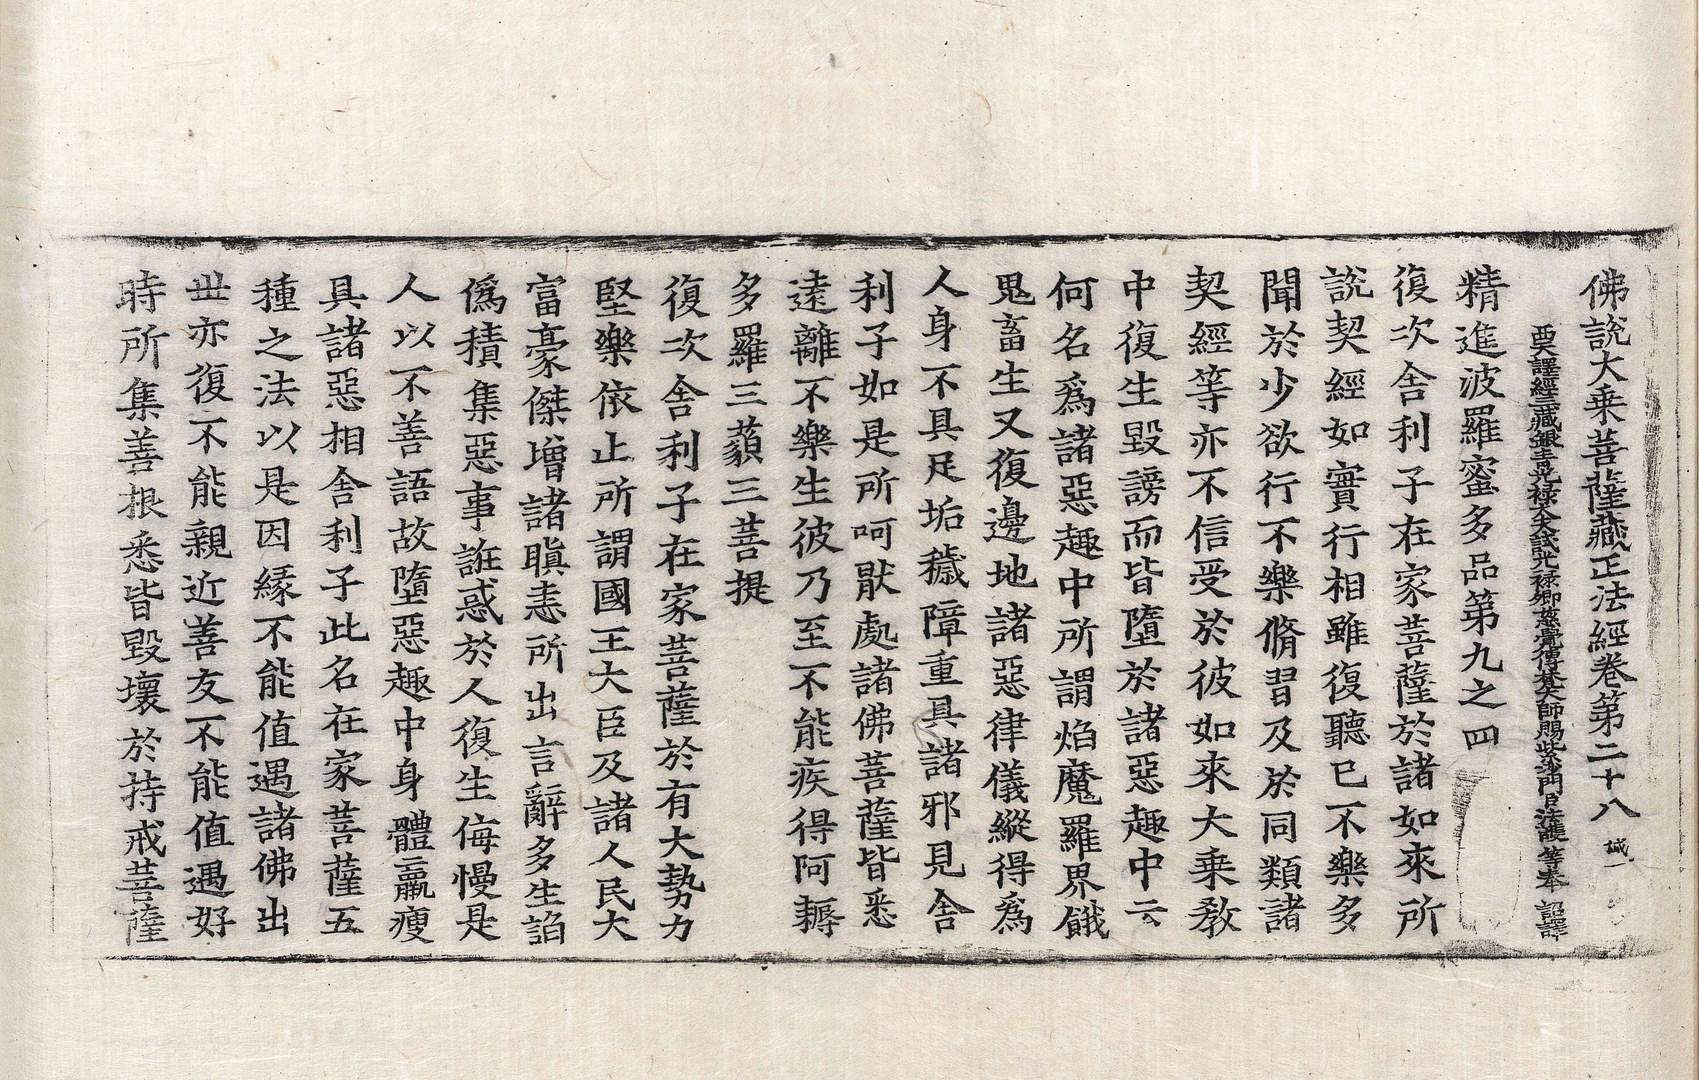 佛說大乗菩薩藏正法經卷第二十八 誠一
西天譯經三藏銀青光祿大夫試光祿卿慈覺傳梵大師賜紫沙門臣法護等奉 詔譯
精進波羅蜜多品第九之四
復次舍利子在家菩薩於諸如來所
說契經如實行相雖復聽已不樂多
聞於少欲行不樂脩習及於同類諸
契經等亦不信受於彼如來大乗教
中復生毀謗而皆墮於諸惡趣中云
何名爲諸惡趣中所謂焰魔羅界餓
鬼畜生又復邊地諸惡律儀縱得爲
人身不具足垢穢障重具諸邪見舍
利子如是所呵猒處諸佛菩薩皆悉
遠離不樂生彼乃至不能疾得阿耨
多羅三藐三菩提
復次舍利子在家菩薩於有大勢力
堅樂依止所謂國王大臣及諸人民大
富豪傑增諸瞋恚所出言辭多生諂
僞積集惡事誑惑於人復生侮慢是
人以不善語故墮惡趣中身體羸瘦
具諸惡相舍利子此名在家菩薩五
種之法以是因緣不能值遇諸佛出
丗亦復不能親近善友不能值遇好
時所集善根悉皆毀壞於持戒菩薩